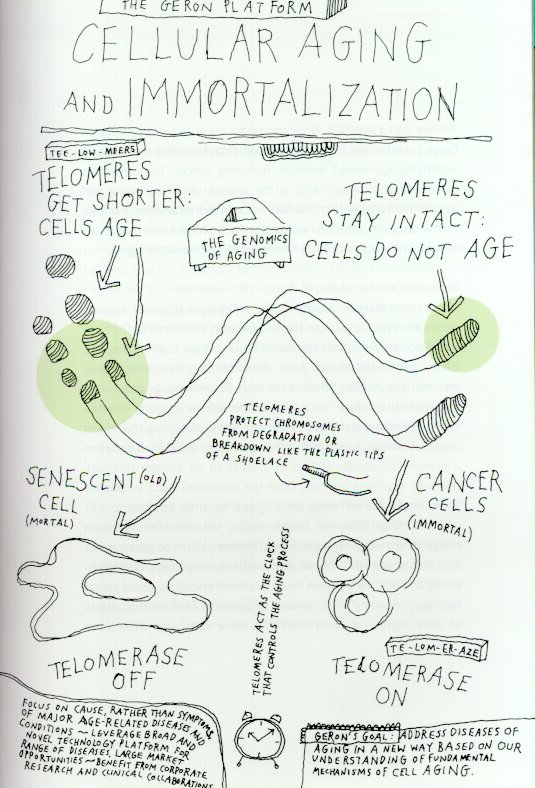 THE GERON PLATFORM
CELLULAR AGING
AND IMMORTALIZATION
TEE-LOW-MDERS
TELOMERES
GET SHORTER:
CELLS AGE
THE GENOMICS
OF AGING
TELOMERES
STAY INTACT:
CELLS DO NOT AGE
TELOMERES
PROTECT CHROMOSOMES
FROM DEGRADATION OR
BREAKDOWN LIKE THE PLASTIC TIPS
OF A SHOELACE
SENESCENT (OLD)
CELL
(MORTAL)
CANCER
CELLS
(IMMORTAL)
TELOMERES ACT AS THE CLOCK
THAT CONTROLS THE AGING PROCESS
TELOMERASE
OFF
TE-LOM-ER-AZE
TELOMERASE
ON
FOCUS ON CAUSE, RATHER THAN SYMPTOMS
OF MAJOR AGE-RELATED DISEASES AND
CONDITIONS ~ LEVERAGE BROAD AND
NOVEL TECHNOLOGY PLATFORM FOR
RANGE OF DISEASES, LARGE MARKET
OPPORTUNITIES ~ BENEFIT FROM CORPORATE
RESEARCH AND CLINICAL COLLABORATIONS
GERON'S GOAL: ADDRESS DISEASES OF
AGING IN A NEW WAY BASED ON OUR
UNDERSTANDING OF FUNDAMENTAL
MECHANISMS OF CELL AGING.